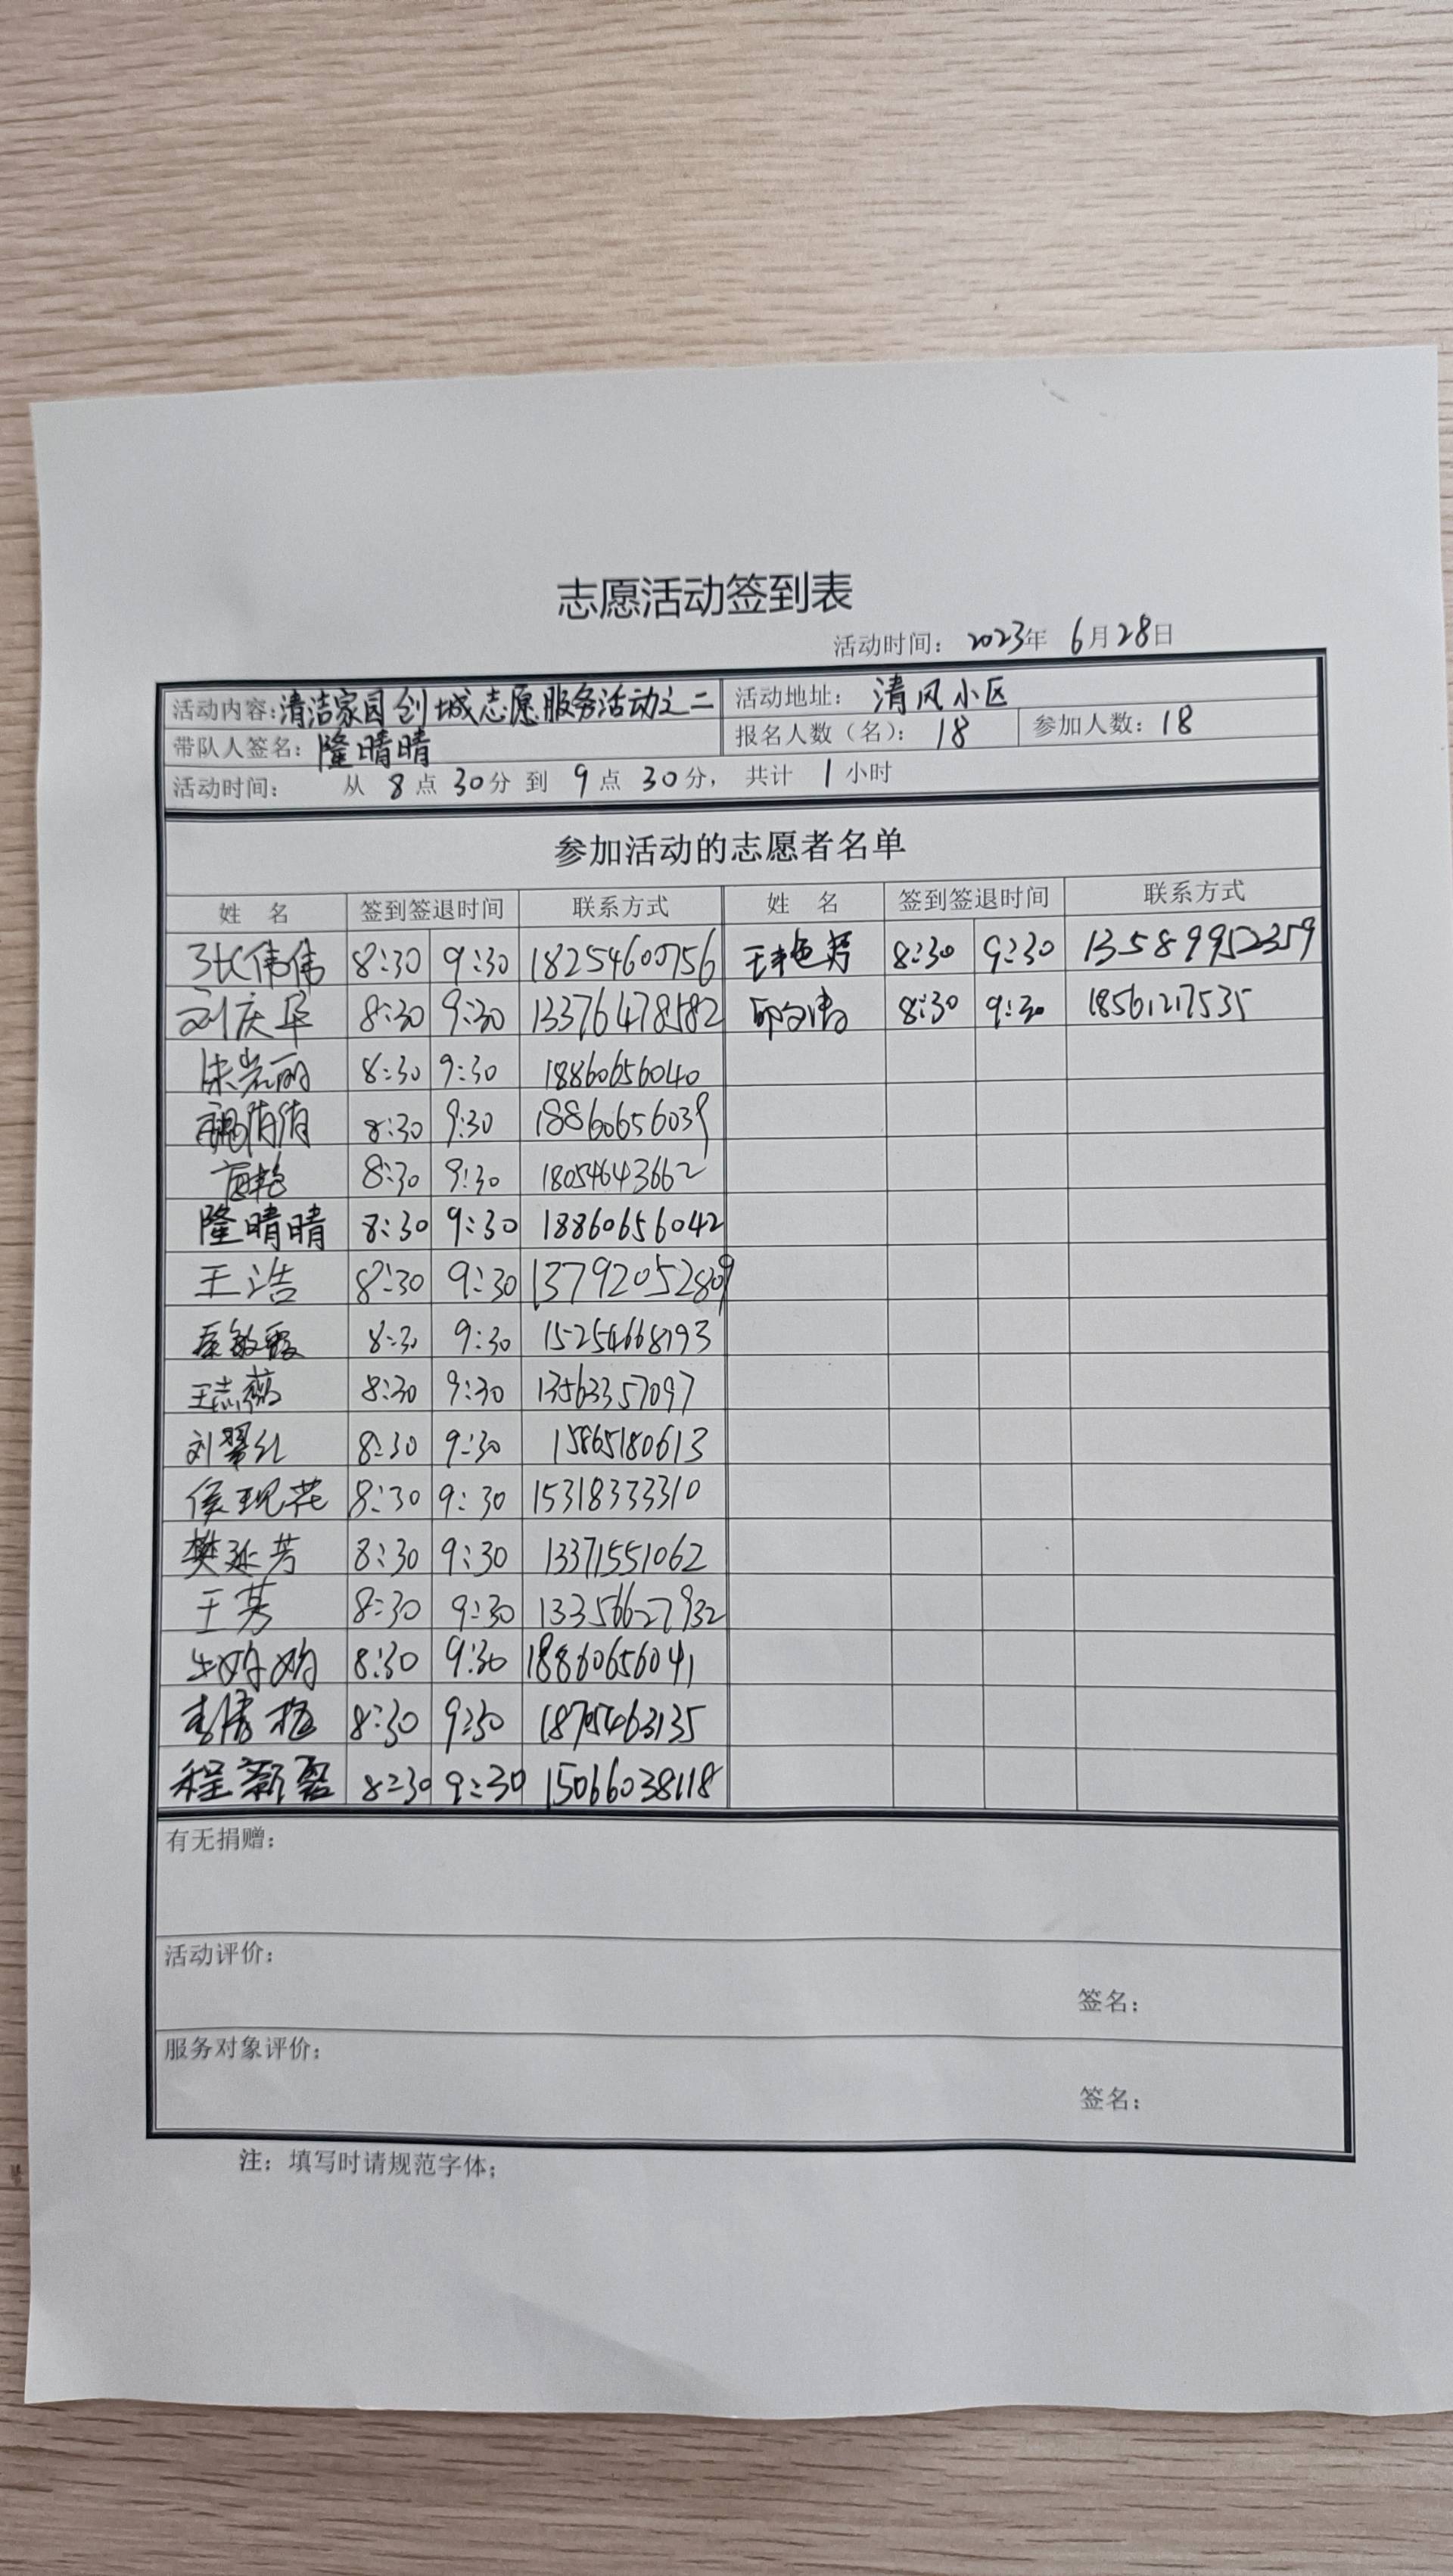 志愿活动签到表
活动时间： 2023年 6月28日
活动内容：清洁家园创城志愿服务活动之二 活动地址： 清风小区
带队人签名：隆晴晴 报名人数（名）： 18 参加人数：18
活动时间： 从 8 点 30分 到 9 点 30分， 共计 1 小时
参加活动的志愿者名单
姓 名 签到签退时间 联系方式 姓 名 签到签退时间 联系方式
张伟伟 8:30 9:30 18254600756 王艳芳 8:30 9:30 13589952359
刘庆华 8:30 9:30 13376478582 8:30 9:30 18561217535
8:30 9:30 18860656040
魏倩倩 8:30 9:30 18860656039
8:30 9:30 18054643662
隆晴晴 8:30 9:30 18860656042
王浩 8:30 9:30 13792052809
秦敏霞 8:30 9:30 15254668193
王志薇 8:30 9:30 13563357097
刘翠红 8:30 9:30 15865180613
侯现花 8:30 9:30 15318333310
樊延芳 8:30 9:30 13371551062
王芳 8:30 9:30 13356627932
8:30 9:30 18860656041
8:30 9:30 18705463135
程新磊 8:30 9:30 15066038118
有无捐赠：
活动评价：
签名：
服务对象评价：
签名：
注：填写时请规范字体；